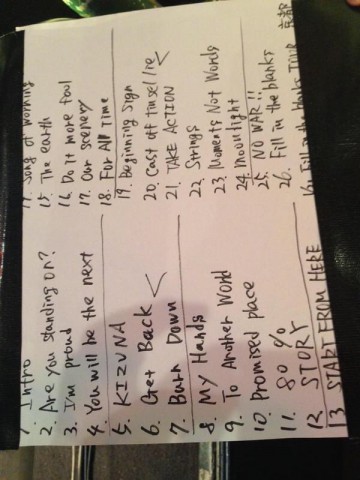 1. Intro
2. Are you standing on?
3. I'm proud
4. You will be the next
5. KIZUNA
6. Get Back
7. Burn Down
8. MY Hands
9. To Another World
10. Promised place
11. 80%
12. STORY
13. START FROM HERE
14. Song of Morning
15. The earth
16. Do it more fool
17. Our scenery
18. For All Time
19. Beginning Sign
20. Cast of tinsel lie
21. TAKE ACTION
22. Strings
23. Moments Not Words
24. Moonlight
25. NO WAR!!
26. Fill in the blanks
Fill in the blanks Time